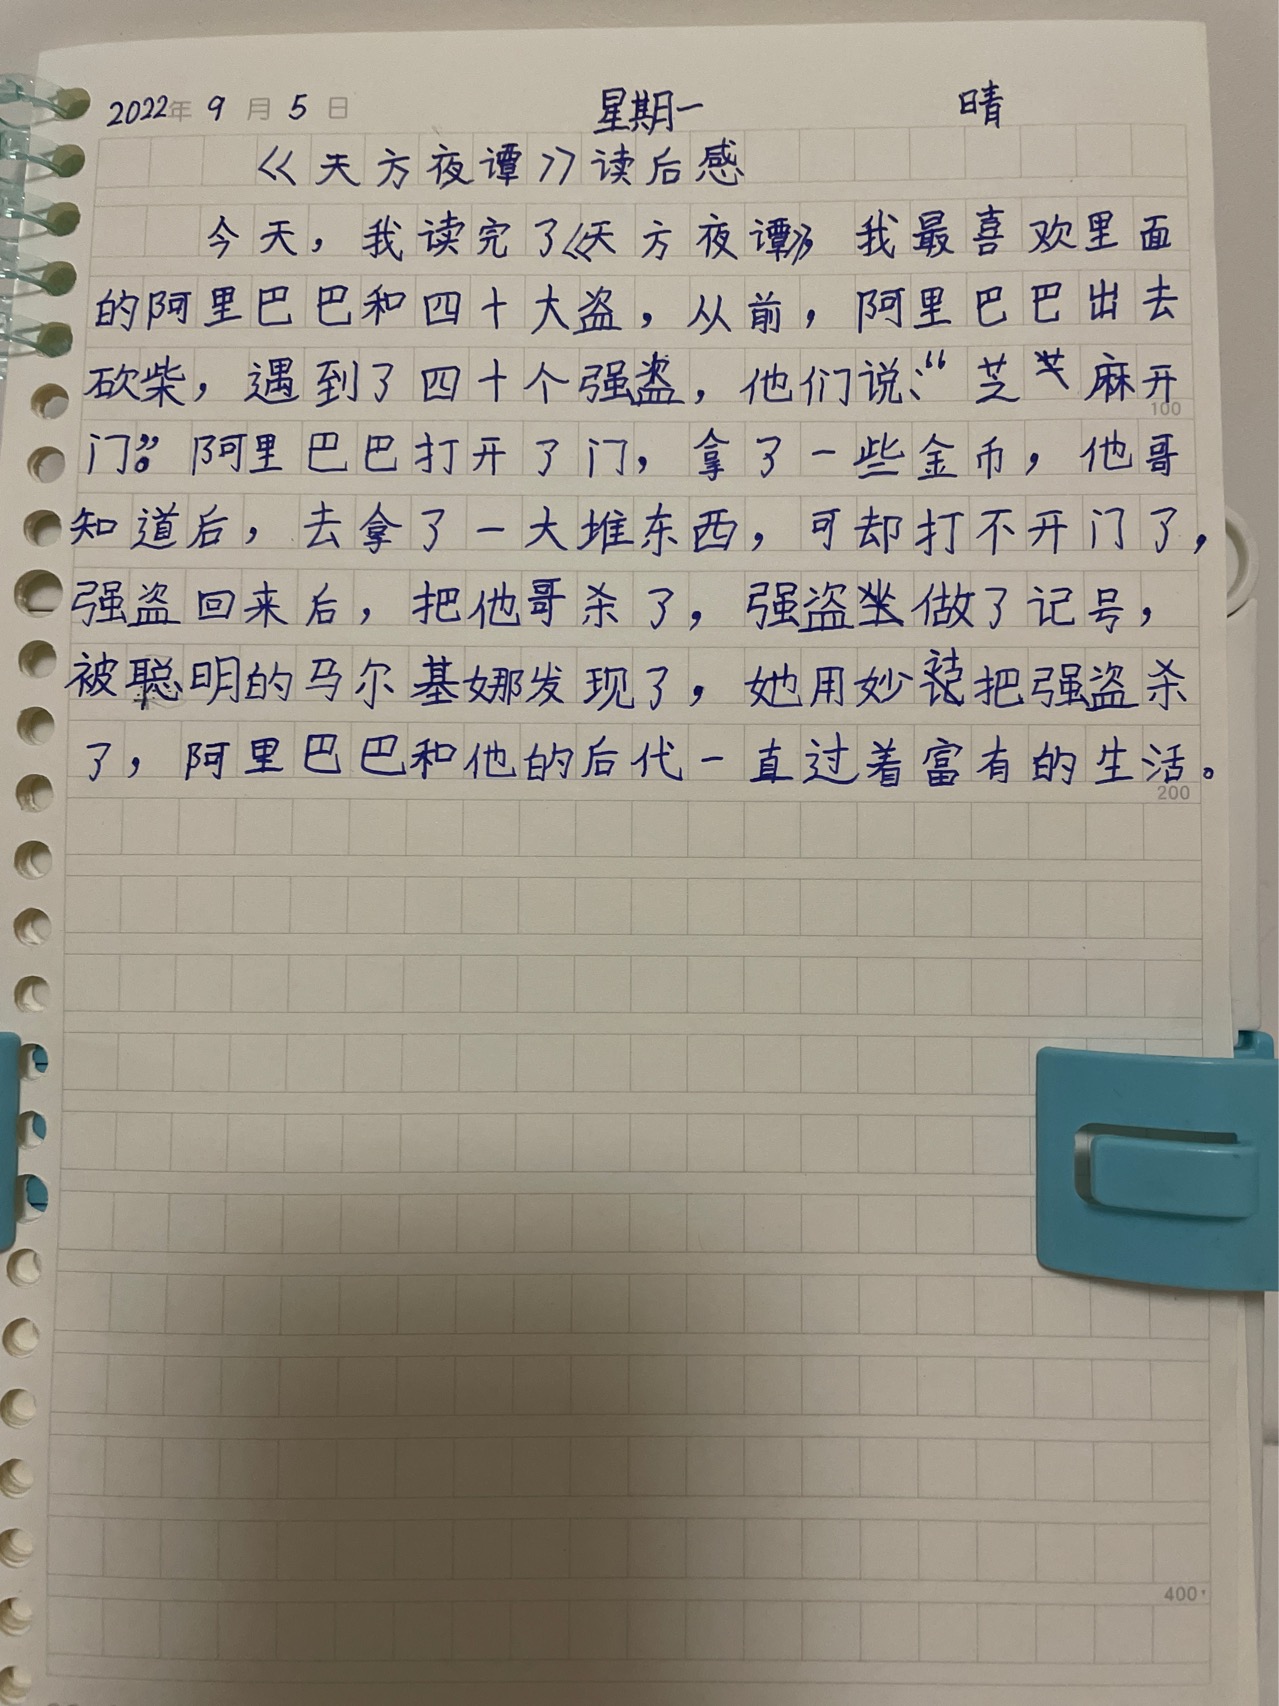 2022年 9 月 5 日 星期一 晴
《天方夜谭》读后感
今天，我读完了《天方夜谭》，我最喜欢里面
的阿里巴巴和四十大盗，从前，阿里巴巴出去
砍柴，遇到了四十个强盗，他们说：“芝麻开
100
门”。阿里巴巴打开了门，拿了一些金币，他哥
知道后，去拿了一大堆东西，可却打不开门了，
强盗回来后，把他哥杀了，强盗做了记号，
被聪明的马尔基娜发现了，她用妙把强盗杀
了，阿里巴巴和他的后代一直过着富有的生活。
200
400